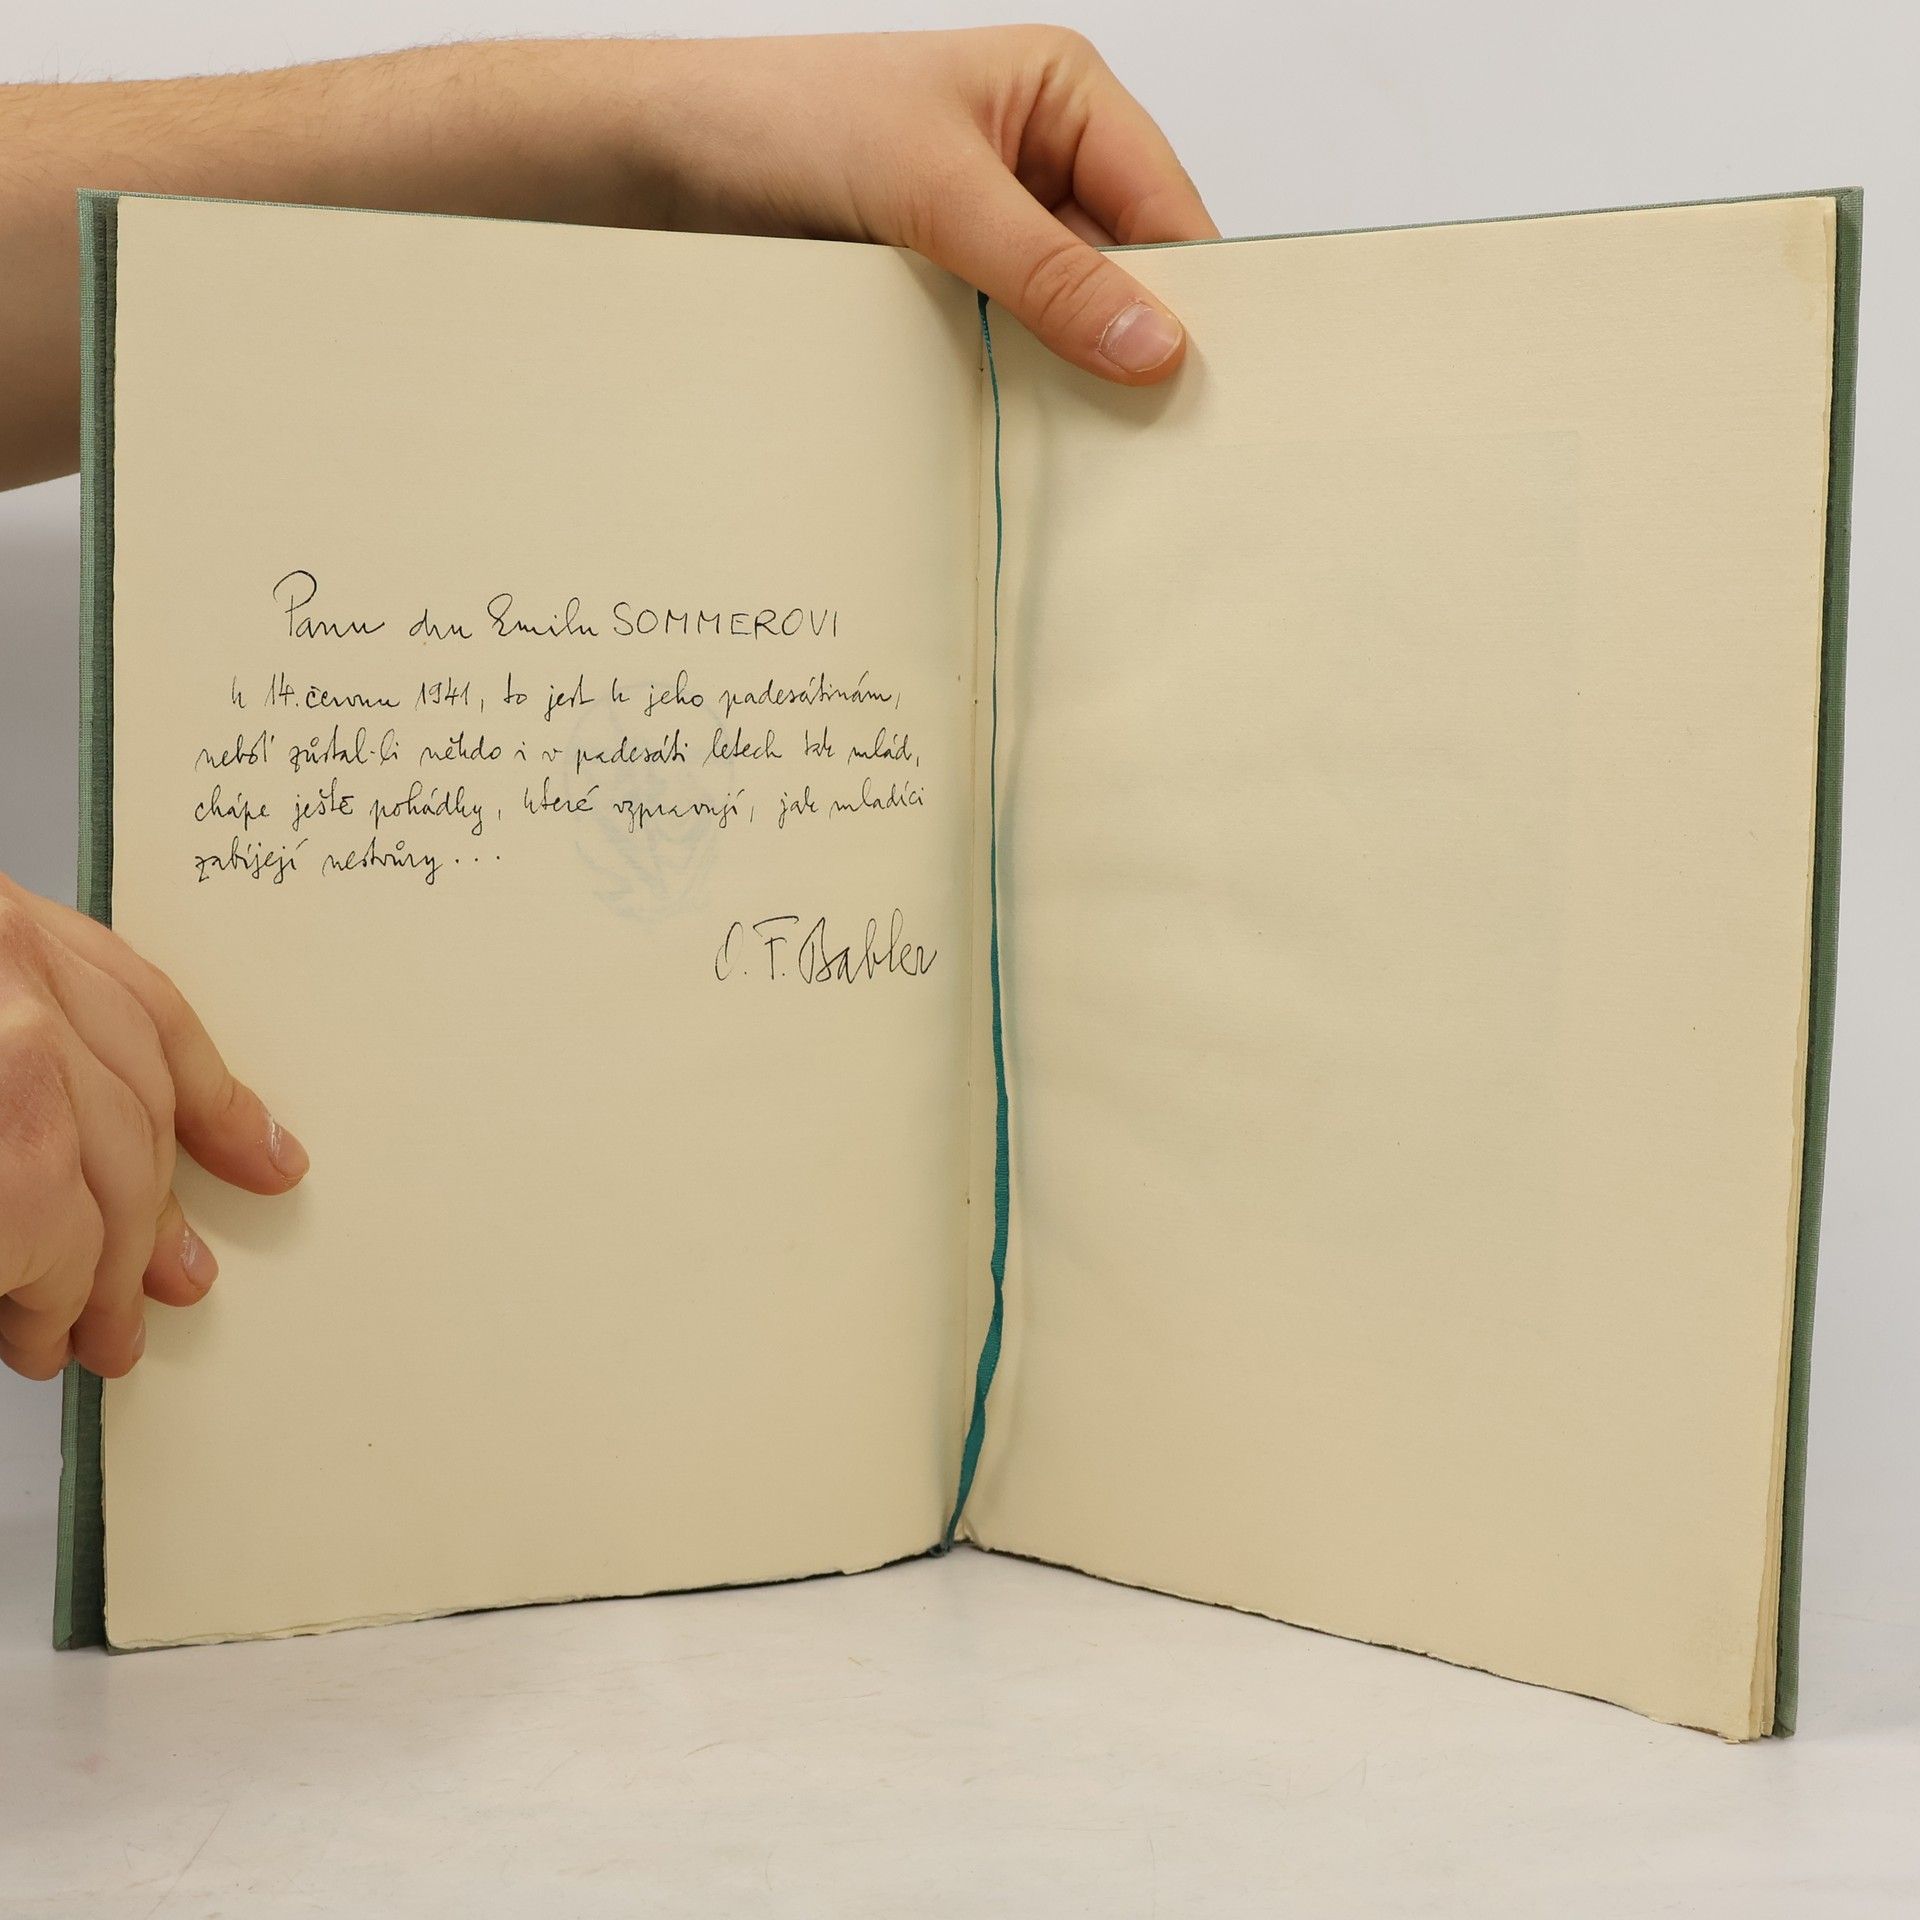 Panu dru Emilu SOMMEROVI
k 14. červnu 1941, to jest k jeho padesátinám,
neboť zůstal-li někdo i v padesáti letech tak mlád,
chápe ještě pohádky, které vypravují, jak mladíci
zabíjejí nestvůry...
O. F. Babler